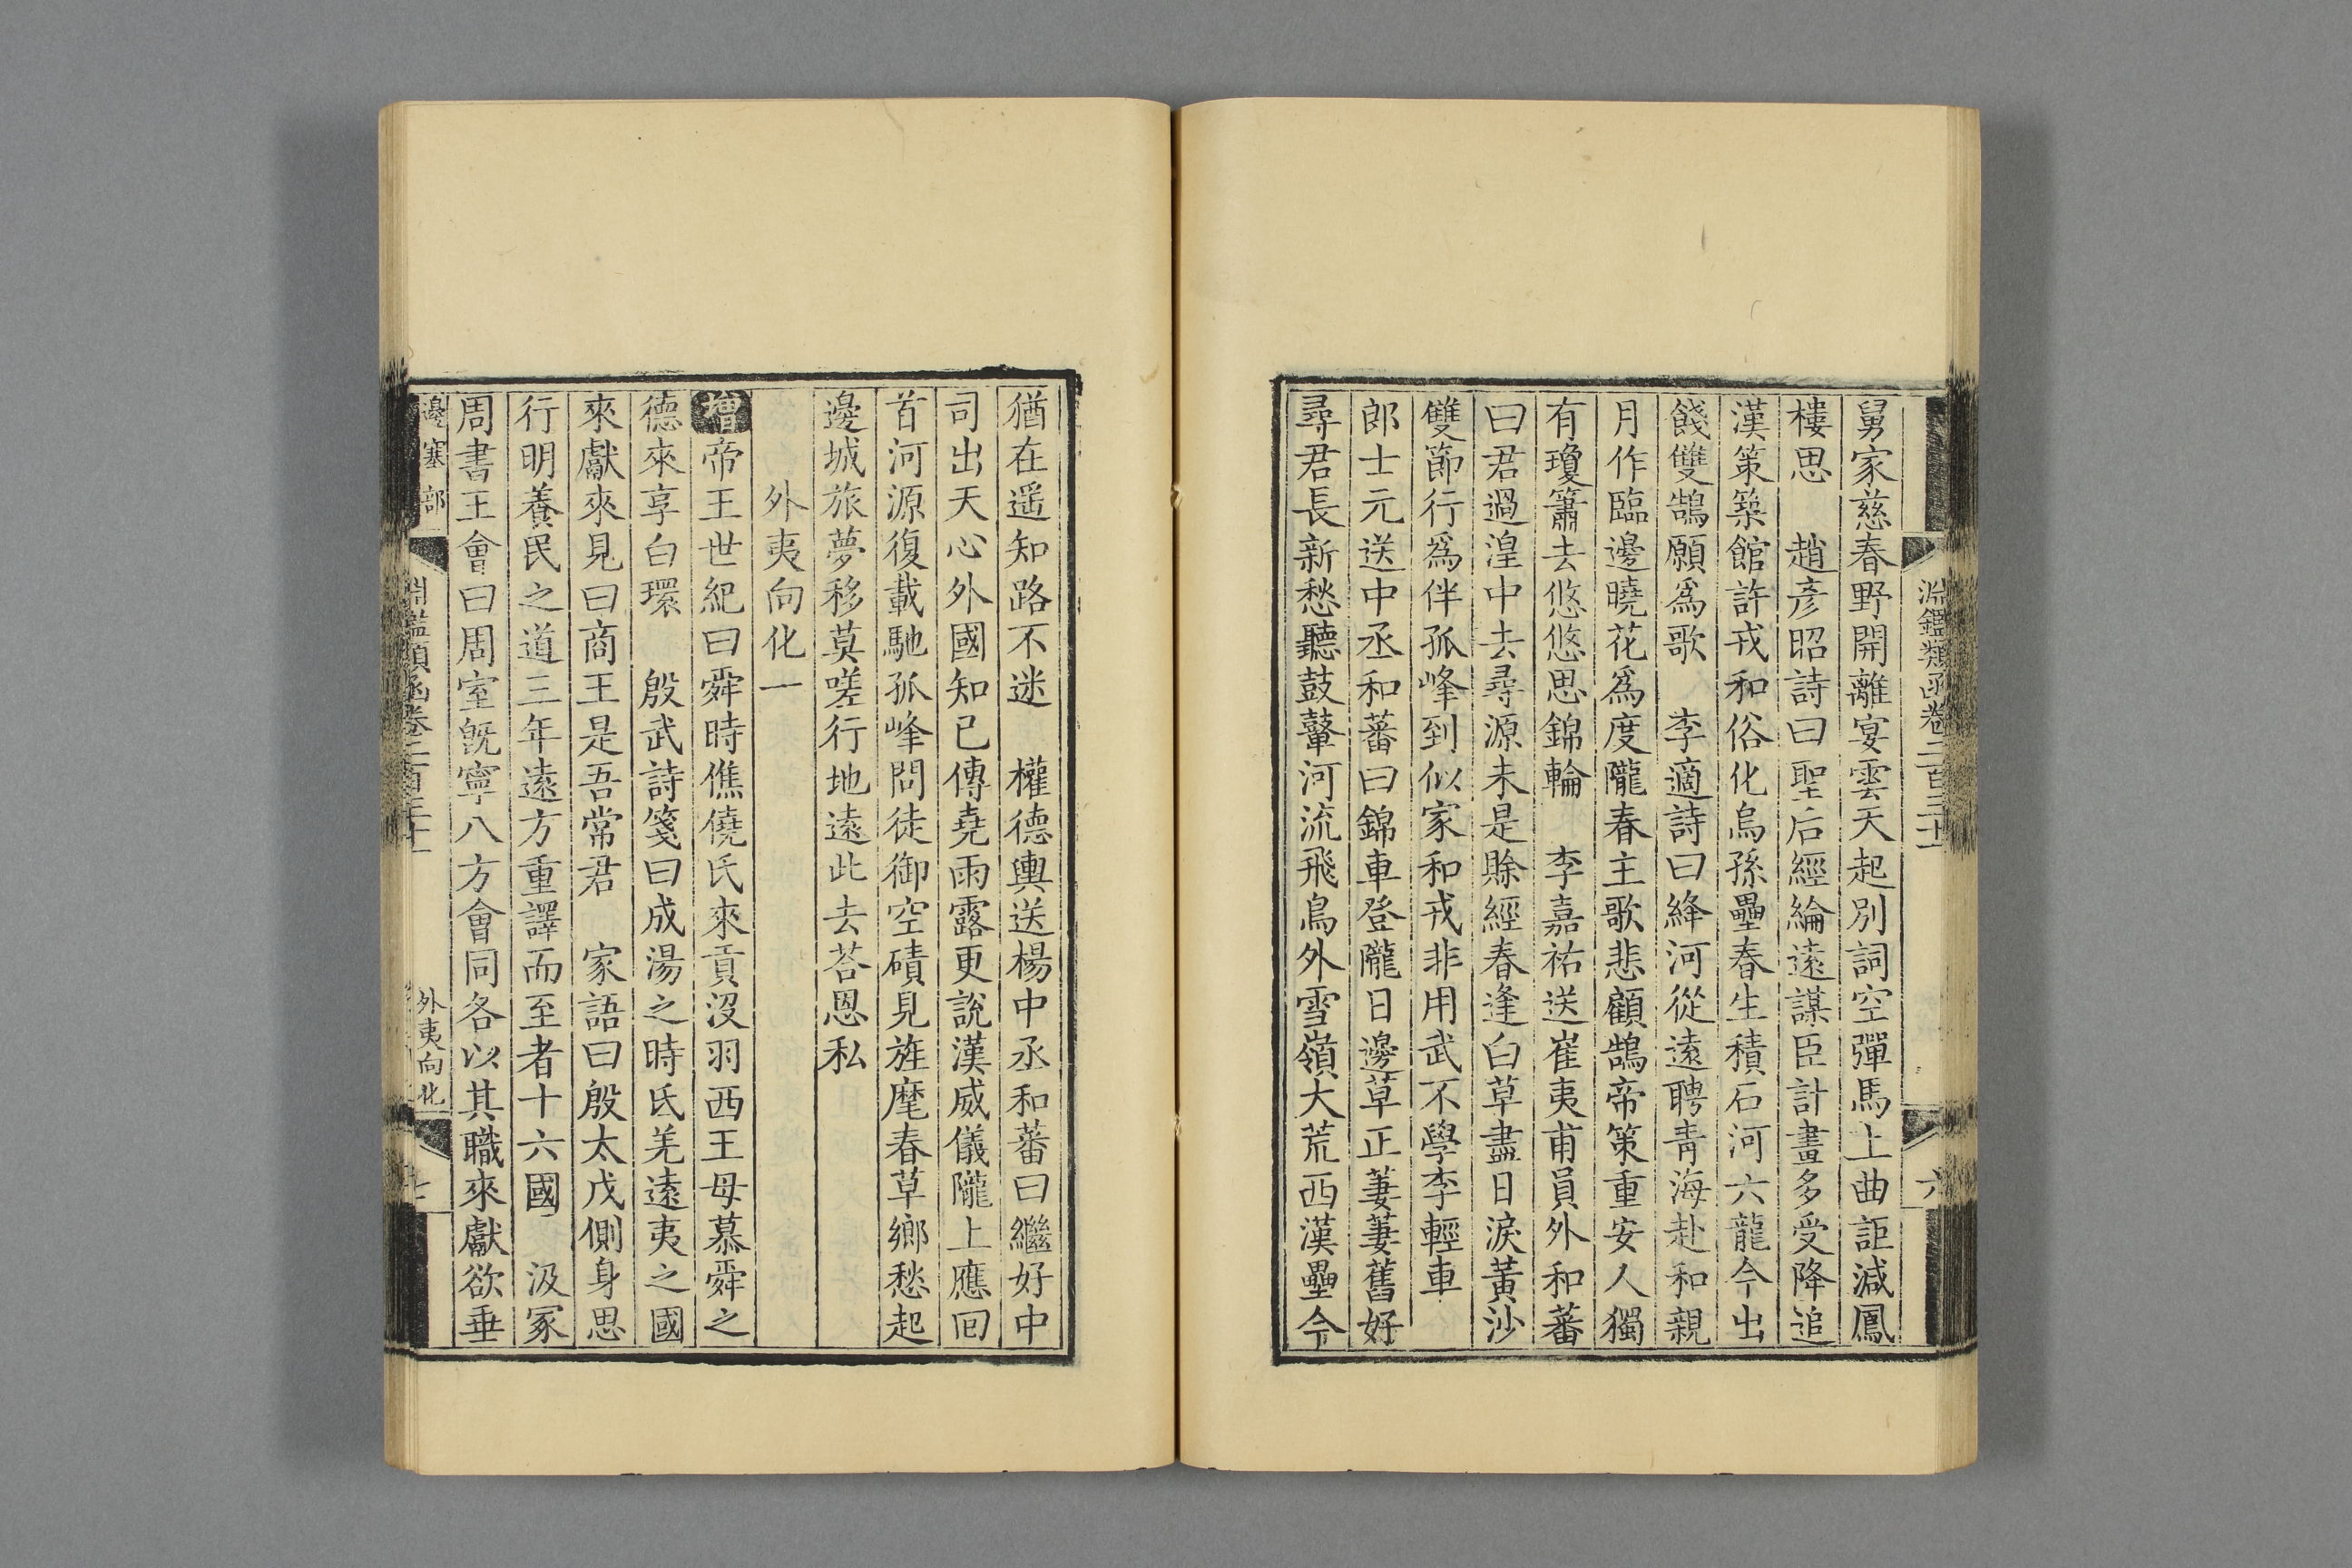 淵鑑類函卷二百三十
六
舅家慈春野開離宴雲天起別詞空彈馬上曲詎減鳳
樓思　趙彥昭詩曰聖后經綸遠謀臣計畫多受降追
漢策築館許戎和俗化烏孫壘春生積石河六龍今出
餞雙鵠願爲歌　李適詩曰絳河從遠聘青海赴和親
月作臨邊曉花爲度隴春主歌悲顧鵠帝策重安人獨
有瓊簫去悠悠思錦輪　李嘉祐送崔夷甫員外和蕃
曰君過湟中去尋源未是賒經春逢白草盡日淚黃沙
雙節行爲伴孤峰到似家和戎非用武不學李輕車
郎士元送中丞和蕃曰錦車登隴日邊草正萋萋舊好
尋君長新愁聽鼓鼙河流飛鳥外雪嶺大荒西漢壘今
猶在遥知路不迷　權德輿送楊中丞和蕃曰繼好中
司出天心外國知已傳堯雨露更說漢威儀隴上應回
首河源復載馳孤峰問徒御空磧見旌麾春草鄉愁起
邊城旅夢移莫嗟行地遠此去荅恩私
外夷向化一
增帝王世紀曰舜時僬僥氏來貢沒羽西王母慕舜之
德來享白環　殷武詩箋曰成湯之時氐羌遠夷之國
來獻來見曰商王是吾常君　家語曰殷太戊側身思
行明養民之道三年遠方重譯而至者十六國　汲冢
周書王會曰周室旣寧八方會同各以其職來獻欲垂
邊塞部
淵鑑類函卷二百三十
外夷向化
七